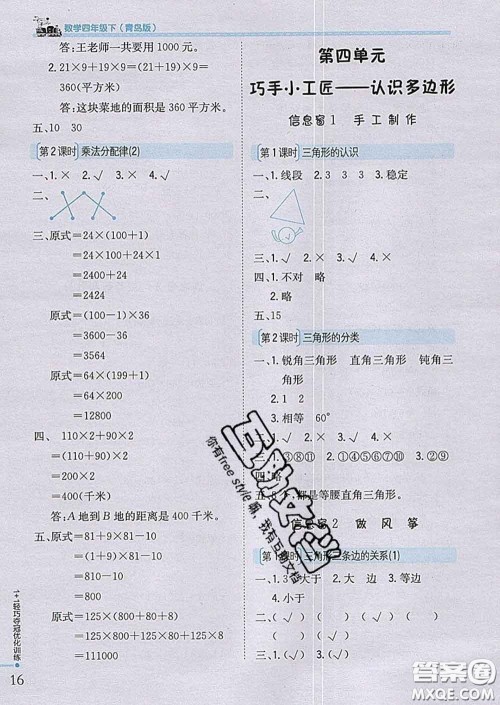 数学四年级下(青岛版)
答:王老师一共要用1000元。
2. 21×9+19×9=(21+19)×9=
360(平方米)
答:这块菜地的面积是360平方米。
五、10 30
第2课时 乘法分配律(2)
一、1.× 2.√ 3.× 4.√
二、
三、原式=24×(100+1)
=24×100+24×1
=2400+24
=2424
原式=(100-1)×36
=100×36-1×36
=3600-36
=3564
原式=64×(199+1)
=64×200
=12800
四、 110×2+90×2
=(110+90)×2
=200×2
=400(千米)
答:A地到B地的距离是400千米。
五、原式=81+9×81-10
=81×(9+1)-10
=81×10-10
=810-10
=800
原式=125×(800+80+8)
=125×800+125×80+125×8
=100000+10000+1000
=111000
1+1轻巧夺冠优化训练
16
第四单元
巧手小工匠——认识多边形
信息窗1 手工制作
第1课时 三角形的认识
一、1.线段 2.3 3 3 3.稳定
二、
三、1.√ 2.× 3.√ 4.×
四、1.不对 略
2.略
五、15
第2课时 三角形的分类
一、1.锐角三角形 直角三角形 钝角三
角形
2.1 2
3.相等 60°
二、1.× 2.× 3.√ 4.×
三、①③⑧⑪
四、略
都是等腰直角三角形。
信息窗2 做风筝
第1课时 三角形三条边的关系(1)
一、1.3 2.大于 3.大于 4.等边
4.小于
二、( ) (√) ( ) (√)
(√) ( ) (√) (√)
互助文学
你有free style版,我有互助文档
答案圈
MXQE.COM